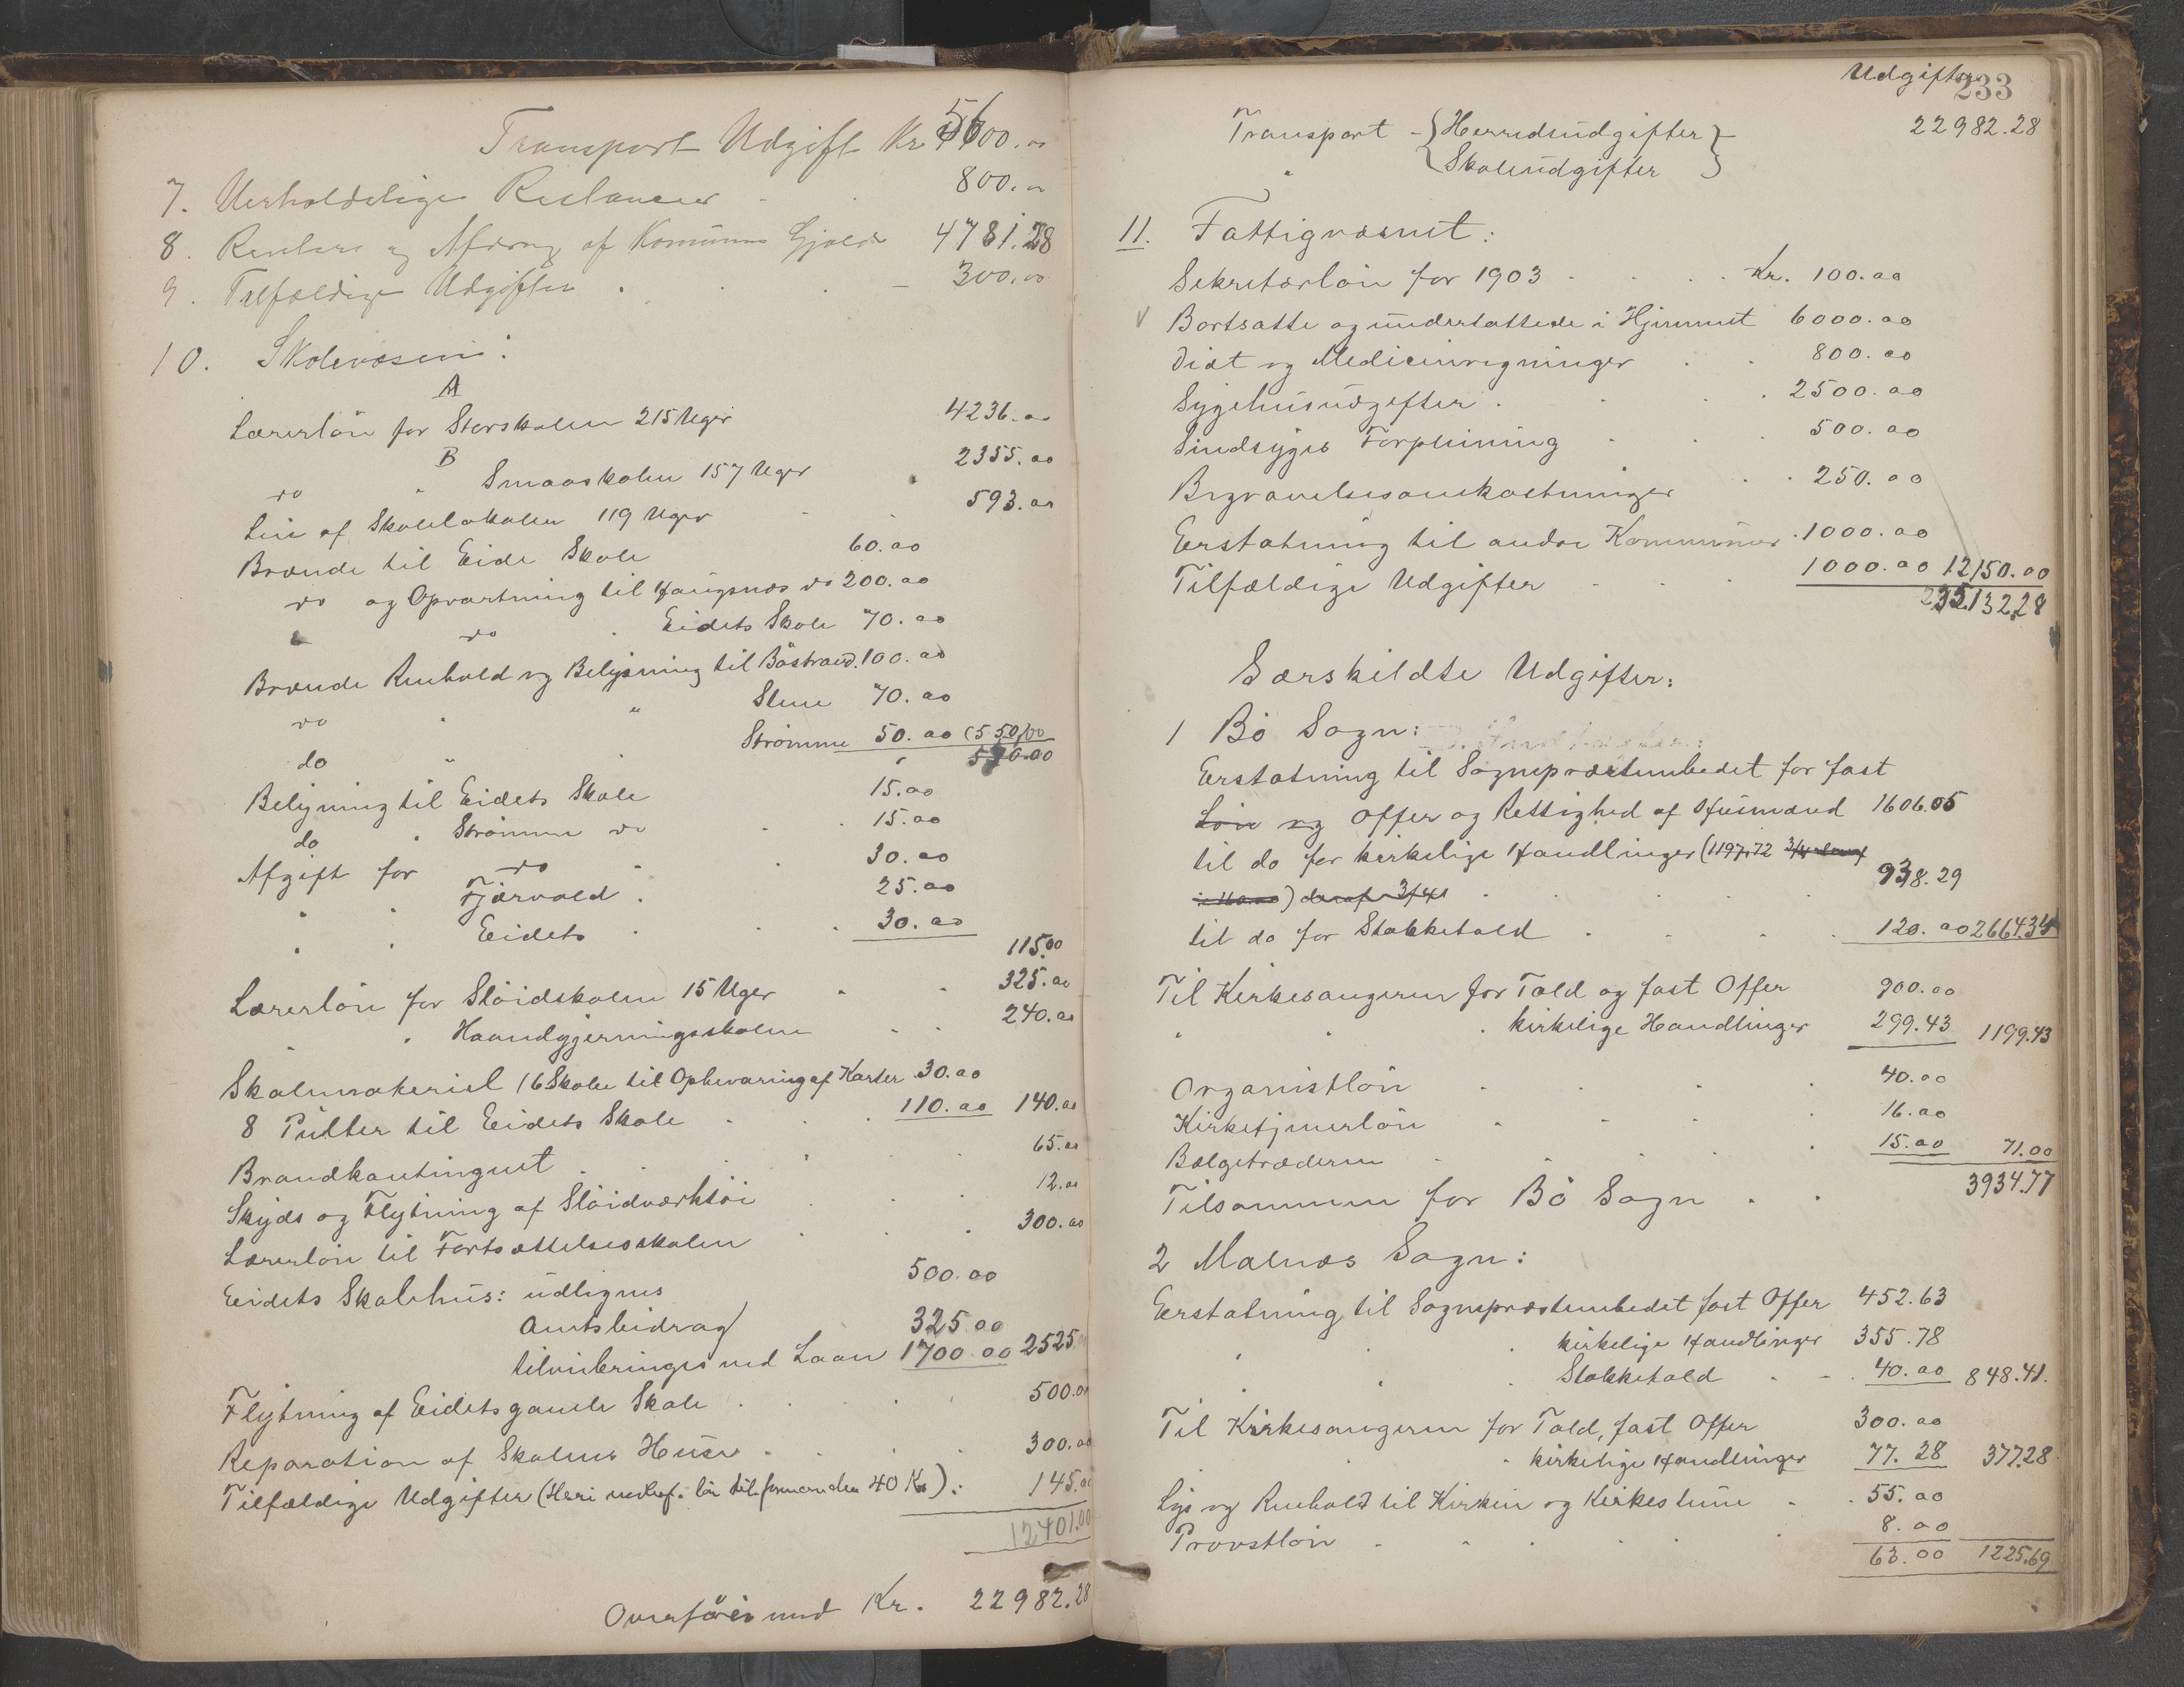 Transport Udgift Kr 5600.00
7. Uerholdelige Restancer 800.00
8. Renter og Afdrag af Kommunens Gjæld 4781.28
9. Tilfældige Udgifter 300.00
10. Skolevæsen:
A
Lærerlön for Storskolen 215 Uger 4236.00
B
do " Smaaskolen 157 Uger 2355.00
Leie af Skolelokaler 119 Uger 593.00
Brænde til Eide Skole 60.00
do og Opvartning til Haugsnæs do 200.00
" do Eidets Skole 70.00
Brænde Renhold og Belysning til Böstrand. 100.00
do " " Steine 70.00
do " " Strømme 50.00 (550.00
550.00
Belysning til Eidets Skole 15.00
do " Strømme do 15.00
Afgift for do " 30.00
" " Fjærvold 25.00
" " Eidets 30.00
115.00
Lærerlön for Slöidskolen 15 Uger 325.00
" Haandgjerningsskolen 240.00
Skolemateriel (6 Skabe til Opbevaring af Karter 30.00
8 Pulter til Eidets Skole 110.00 140.00
Brandkontingent 65.00
Skyds og Flytning af Slöidværktöi 12.00
Lærerlön til Fortsættelsesskolen 300.00
Eidets Skolehus: udlignes 500.00
Amtsbidrag 325.00
tilveiebringes ved Laan 1700.00 2525.00
Flytning af Eidets gamle Skole 500.00
Reparation af Skolens Huse 300.00
Tilfældige Udgifter (Heri lön til formanden 40 Kr): 145.00
12401.00
Overföres med Kr. 22982.28
Udgifter
233
Transport - {Herredsudgifter} 22982.28
" {Skoleudgifter}
11. Fattigvæsenet:
Sekretærlön for 1903 Kr. 100.00
Bortsatte og understøttede i Hjemmet 6000.00
Diæt og Medicinregninger 800.00
Sygehusudgifter 2500.00
Sindsyges Forpleining 500.00
Begravelsesomkostninger 250.00
Erstatning til andre Kommuner 1000.00
Tilfældige Udgifter 1000.00 12150.00
35132.28
Særskildte Udgifter:
1 Bö Sogn:
Erstatning til Sognepræstembedet for fast
Lön og Offer og Rettighed af Husmænd 1606.05
til do for kirkelige Handlinger (1197.72
) deraf 3/4 938.29
til do for Stokketold 120.00 2664.34
Til Kirkesangeren for Told og fast Offer 900.00
" " " kirkelige Handlinger 299.43 1199.43
Organistlön 40.00
Kirketjenerlön 16.00
Bælgetræderen 15.00 71.00
Tilsammen for Bö Sogn 3934.77
2 Malnæs Sogn:
Erstatning til Sognepræstembedet fast Offer 452.63
" " kirkelige Handlinger 355.78
" " " Stokketold 40.00 848.41.
Til Kirkesangeren for Told, fast Offer 300.00
" kirkelige Handlinger 77.28 377.28
Lys og Renhold til Kirken og Kirkestuen 55.00
Provstlön 8.00
63.00 1225.69